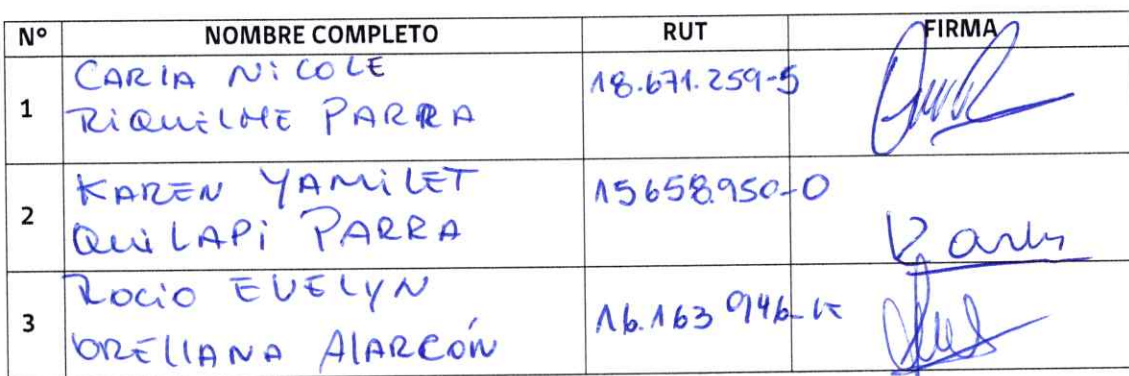 Nº NOMBRE COMPLETO RUT FIRMA
1 CARLA NICOLE RIQUELME PARRA 18.671.259-5
2 KAREN YAMILET QUILAPI PARRA 15658.950-0
3 ROCIO EVELYN ORELLANA ALARCÓN 16.163 946-K